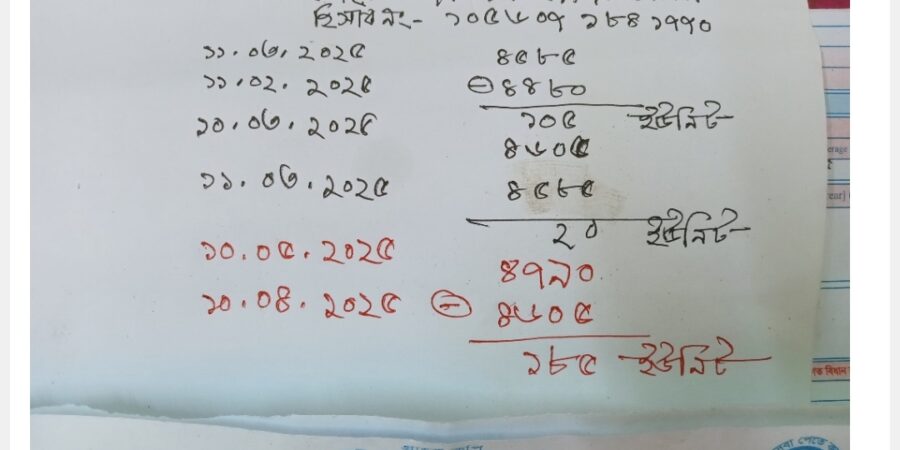 হিসাব নং- ১০৫৬০৭ ১৮৪ ১৭৭০
১১.০৩.২০২৫ ৪৫৮৫
১১.০২.২০২৫ - ৪৪৮০
১০৫ ইউনিট
১০.০৩.২০২৫ ৪৬০৫
১১.০৩.২০২৫ ৪৫৮৫
২০ ইউনিট
১০.০৫.২০২৫ ৪৭৯০
১০.০৪.২০২৫ - ৪৬০৫
১৮৫ ইউনিট